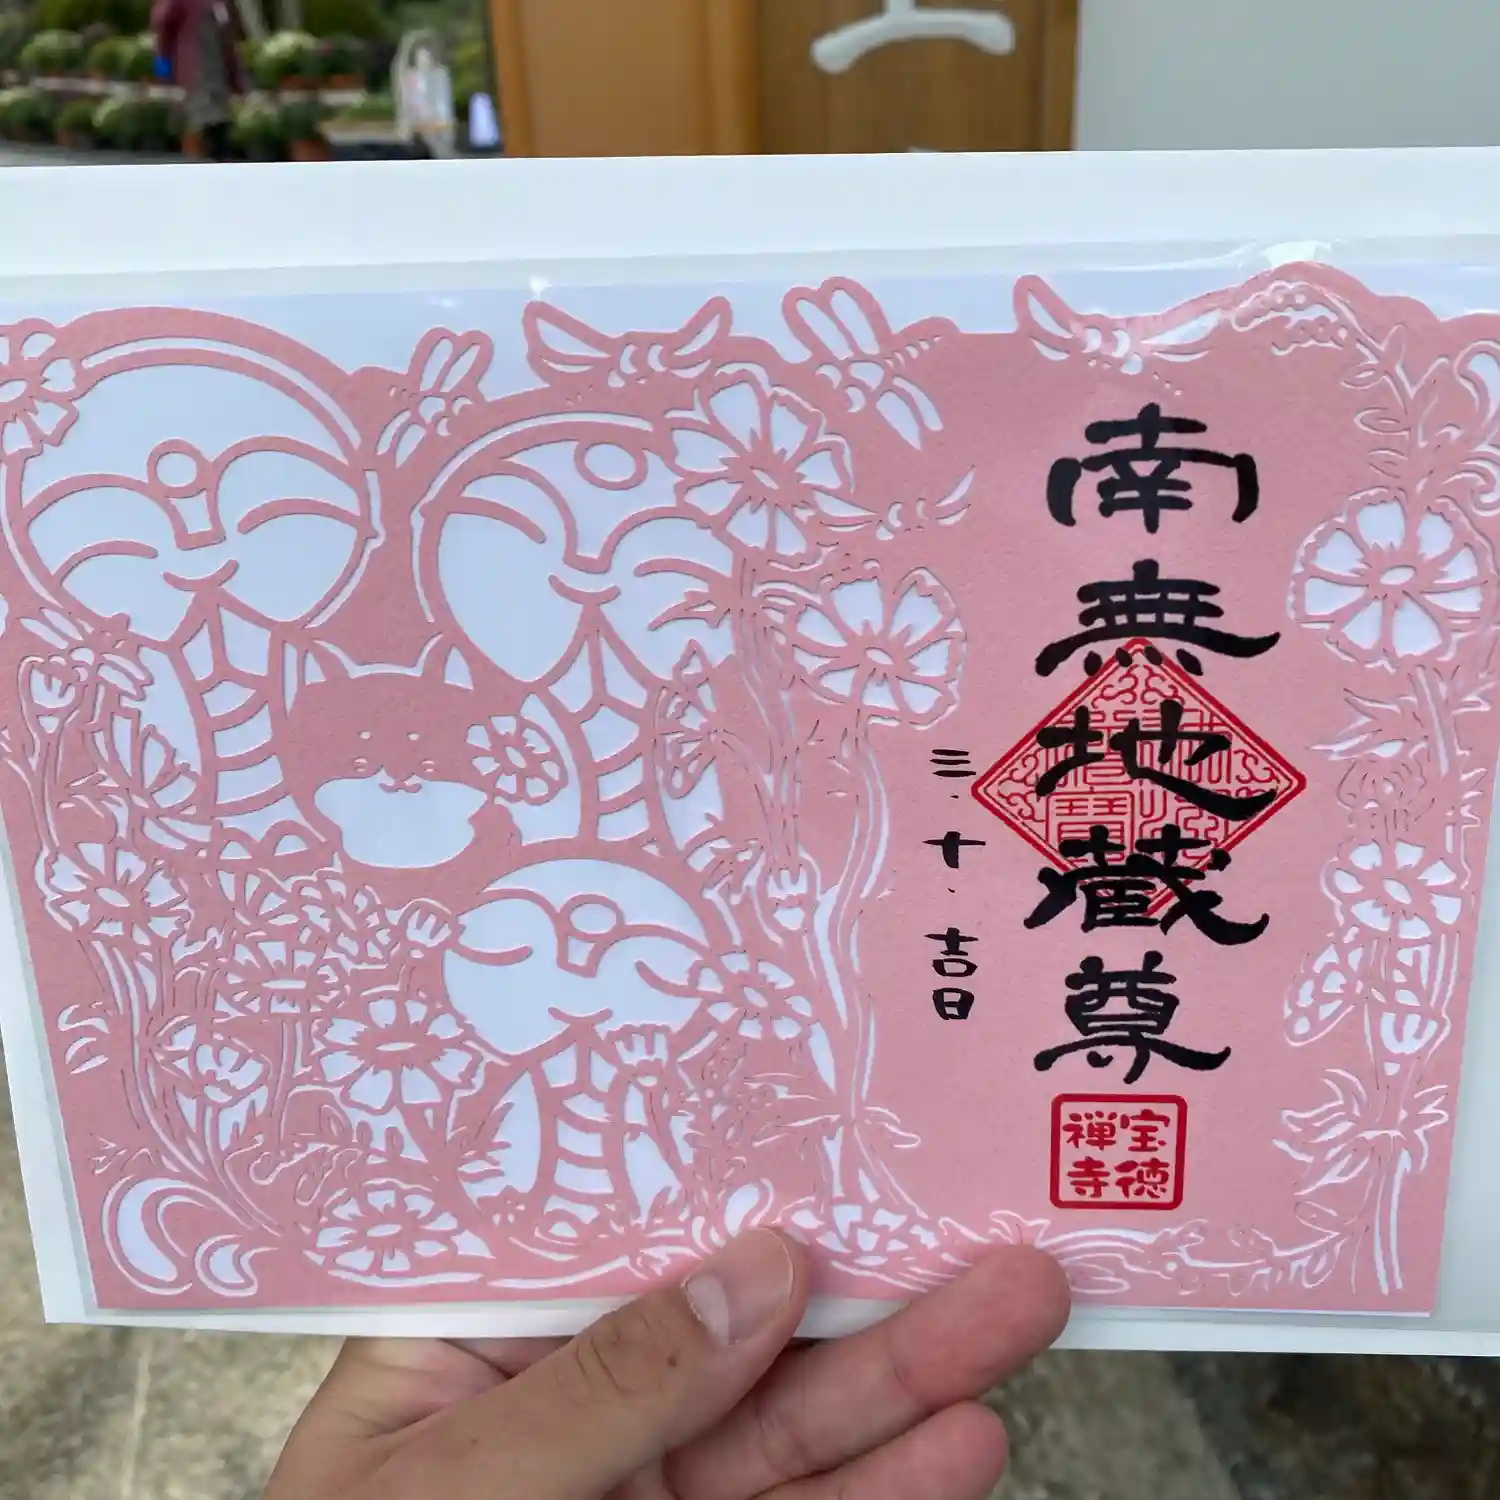 南無地蔵尊
三.十.吉日
宝徳
禅寺